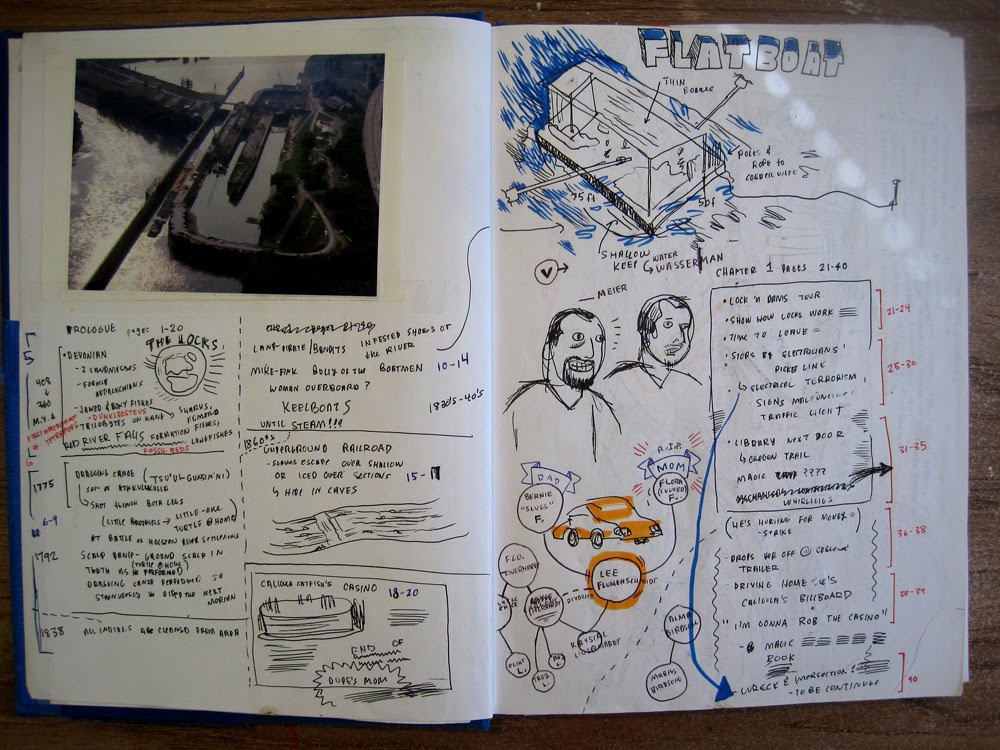 PROLOGUE pages 1-20
THE LOCKS
5
408
360
M.Y.A
• DEVONIAN
- 2 LANDMASSES
- FORMED APPALACHIANS
- JAWED & BONY FISHES
• DUNKLEOSTEUS
OF TETRAPODS
RED RIVER FALLS FORMATION FISHES,
LUNGFISHES
FOSSIL BEDS
6
1775
DRAGGING CANOE (TSU'UL-GUNSIN'NI)
SON OF ATTAKULLAKULLA
SHOT THROUGH BOTH LEGS
(LITTLE BROTHERS → LITTLE-OWL
TURTLE @ HOME)
AT BATTLE OF HOLSTON RIVER SETTLEMENTS
6-9
1792
SCALP DANCE - GROUND SCALP IN
(TURTLE @ HOME)
TEETH AS HE PERFORMED
DRAGGING CANOE PERFORMED SO
STRENUOUSLY HE DIED THE NEXT
MORNIN
1838
ALL INDIANS ARE CLEANSED FROM AREA
LAND-PIRATE/BANDITS INFESTED SHORES OF
the RIVER
MIKE-FINK BULLY OF THE BOATMEN 10-14
WOMAN OVERBOARD?
KEELBOATS
1820'S-40'S
UNTIL STEAM!!!
1860'S
UNDERGROUND RAILROAD
- SLAVES ESCAPE OVER SHALLOW
OR ICED OVER SECTIONS 15-1
↳ HIDE IN CAVES
CALIGULA CATFISH'S CASINO 18-20
END OF
DUDE'S MOM
FLATBOAT
THIN
BOARDS
POLES &
ROPE TO
CORDELLING
75 ft
50f
SHALLOW
KEEP
WATER
WASSERMAN
V
MEIER
CHAPTER 1 PAGES 21-40
• LOCK 'N DAMS TOUR
• SHOW HOW LOCKS WORK
21-24
• TIME TO LEAVE
• STOPS BY ELECTRICIANS'
PICKET LINE
25-30
↳ ELECTRICAL TERRORISM
SIGNS MALFUNCTION
TRAFFIC LIGHT
• LIBRARY NEXT DOOR
31-35
↳ OREGON TRAIL
MAGIC ????
WHIRLIGIGS
(HE'S HURTING FOR MONEY
- STRIKE
36-38
- DROPS HER OFF @
TRAILER
- DRIVING HOME
38-39
CALIGULA'S BILLBOARD
"I'M GONNA ROB THE CASINO"
MAGIC
BOOK
- WRECK @ INTERSECTION!
- TO BE CONTINUED
40
DAD
BERNIE
"SLUGG"
F.
R.I.P.
MOM
FLORA
(CULVER)
F.
FLO.
LEE
FLUMENSCHMIDT
DIVORCED
KRYSTAL
ALMA
BIRDSONG
MURRIS
BIRDSONG